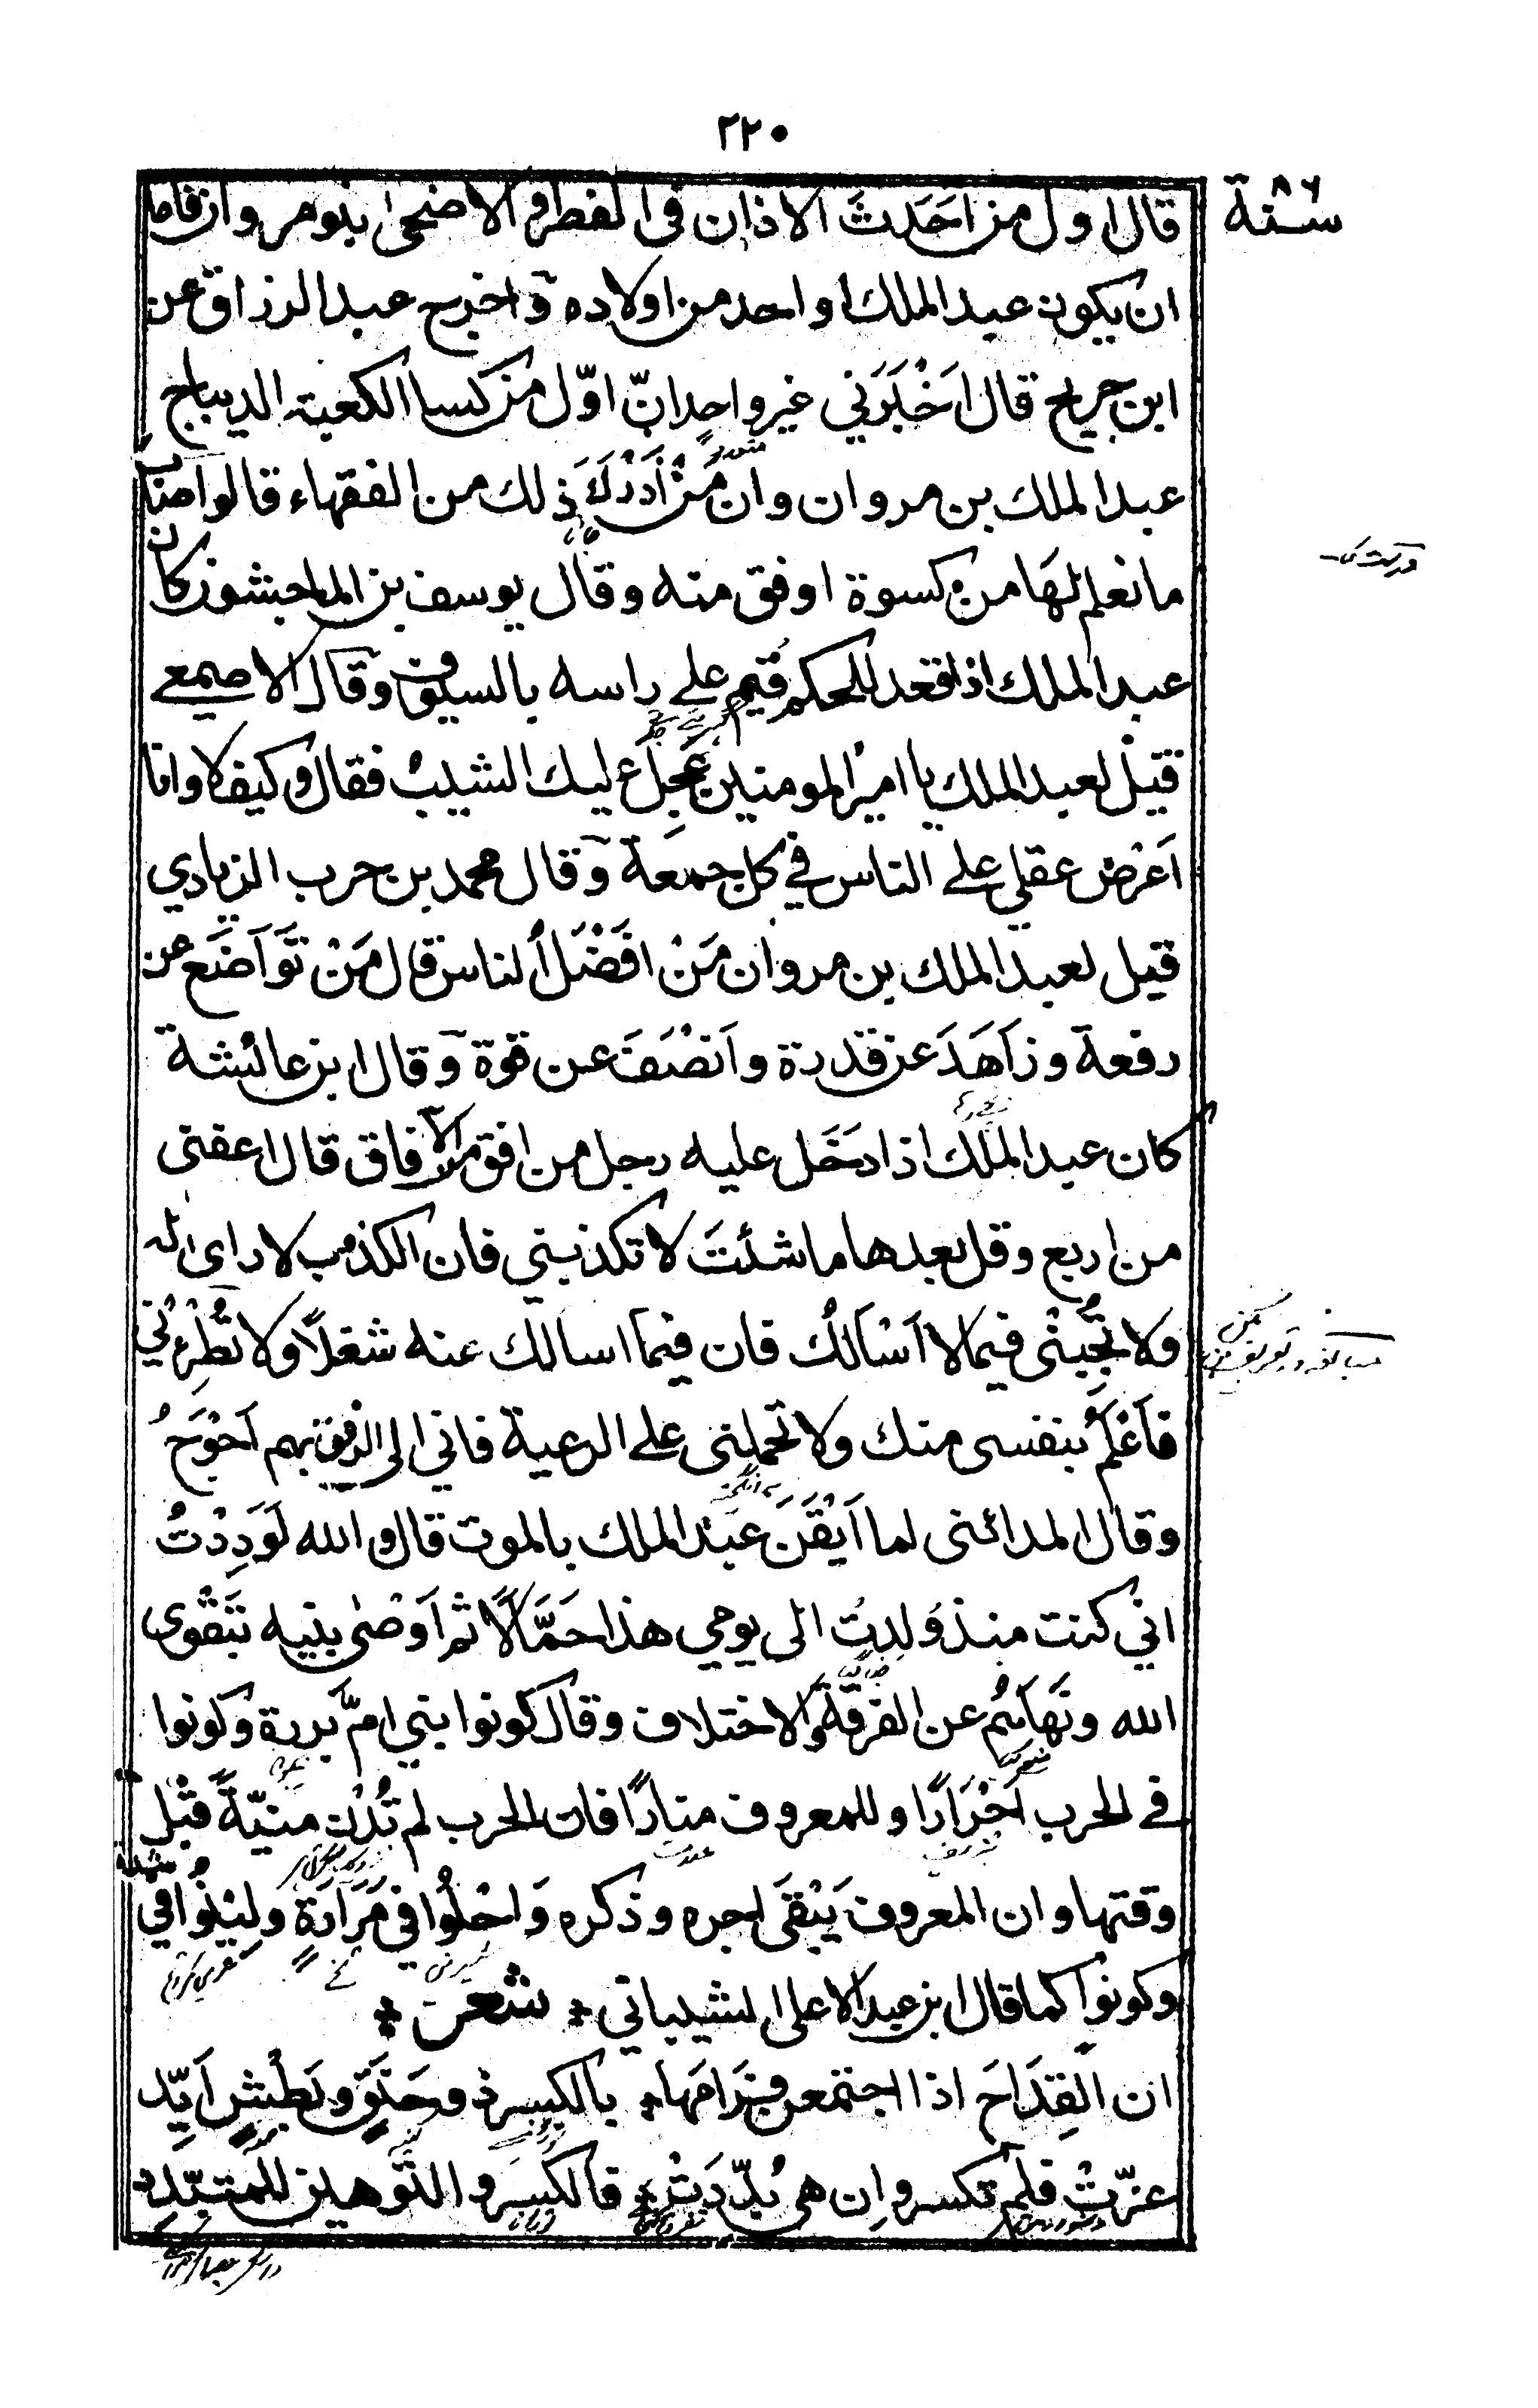 ٢٢٠
سنة ٨٦
قال اول من احَدثَ الاذان في الفطر والاضحیٰ بنو مروان فاما
ان يكون عبد الملك او احد من اولاده واخرج عبد الرزاق عن
ابن جريج قال اَخْبَرَني غير واحد انّ اوّل من كسا الكعبة الديباج
عبد الملك بن مروان وان مَنْ اَدْرَكَ ذلك من الفقهاء قالوا اصاب
ما نعلم لهَا من كسوة اوفق منه وقال يوسف بن الماجشون كان
عبد الملك اذا قعد للحكم قُيم علے راسه بالسيوف وقال الاصمعے
قيل لعبد الملك يا امير المومنين عَجِلَ عليك الشيبُ فقال وكيف لا وانا
اَعْرض عقلي علے الناس في كل جمعة وقال محمد بن حرب الزيادي
قيل لعبد الملك بن مروان مَنْ افَضْلُ الناس قال مَنْ تَوَاضَع عن
رفعة وزَاهَدَ عن قدرة واَنصْفَ عن قوة وقال ابن عائشة
كان عبد الملك اذا دخَل عليه رجل من افق من الآفاق قال اعفنى
من اربع وقل بعدها ما شئتَ لا تكذبني فان الكذوب لا راى له
ولا تُجِبْنى فيما لا اَسْاَلُك فان فيما اسالك عنه شغلاً ولا تُطْرِني
فاَنا اَعْلَمُ بنفسى منك ولا تحملنى علے الرعية فاني الى الرفق بهم اَحْوَجُ
وقال المدائنى لما اَيْقَنَ عبد الملك بالموت قال والله لَوَدِدْتُ
اني كنت منذ وُلِدتُ الى يومي هذا حَمَّالاً ثم اَوْصٰى بنيه بتَقْوى
الله ونَهَاهُم عن الفرقَة والاختلاف وقال كونوا بني امّ بررة وكونوا
فے الحرب اَحْرَارًا وللمعروف منارًا فان الحرب لم تُدْنِ منيّةً قبْل
وقتها وان المعروف يَبْقَى اجره وذكره وَاحْلُوا في مَرَارَةٍ ولِيْنُوا في شدة
وكونوا كما قال ابن عبد الاعلى الشيباني * شعر *
ان القِدَاحَ اذا اجتمعن فرَامَها * بالكسر ذو حَنَقٍ وبَطْشٍ اَيّد
عزّتْ فلم تكسر واِن هي بُدّدَتْ * فالكسر والتوهين للمتبدّد